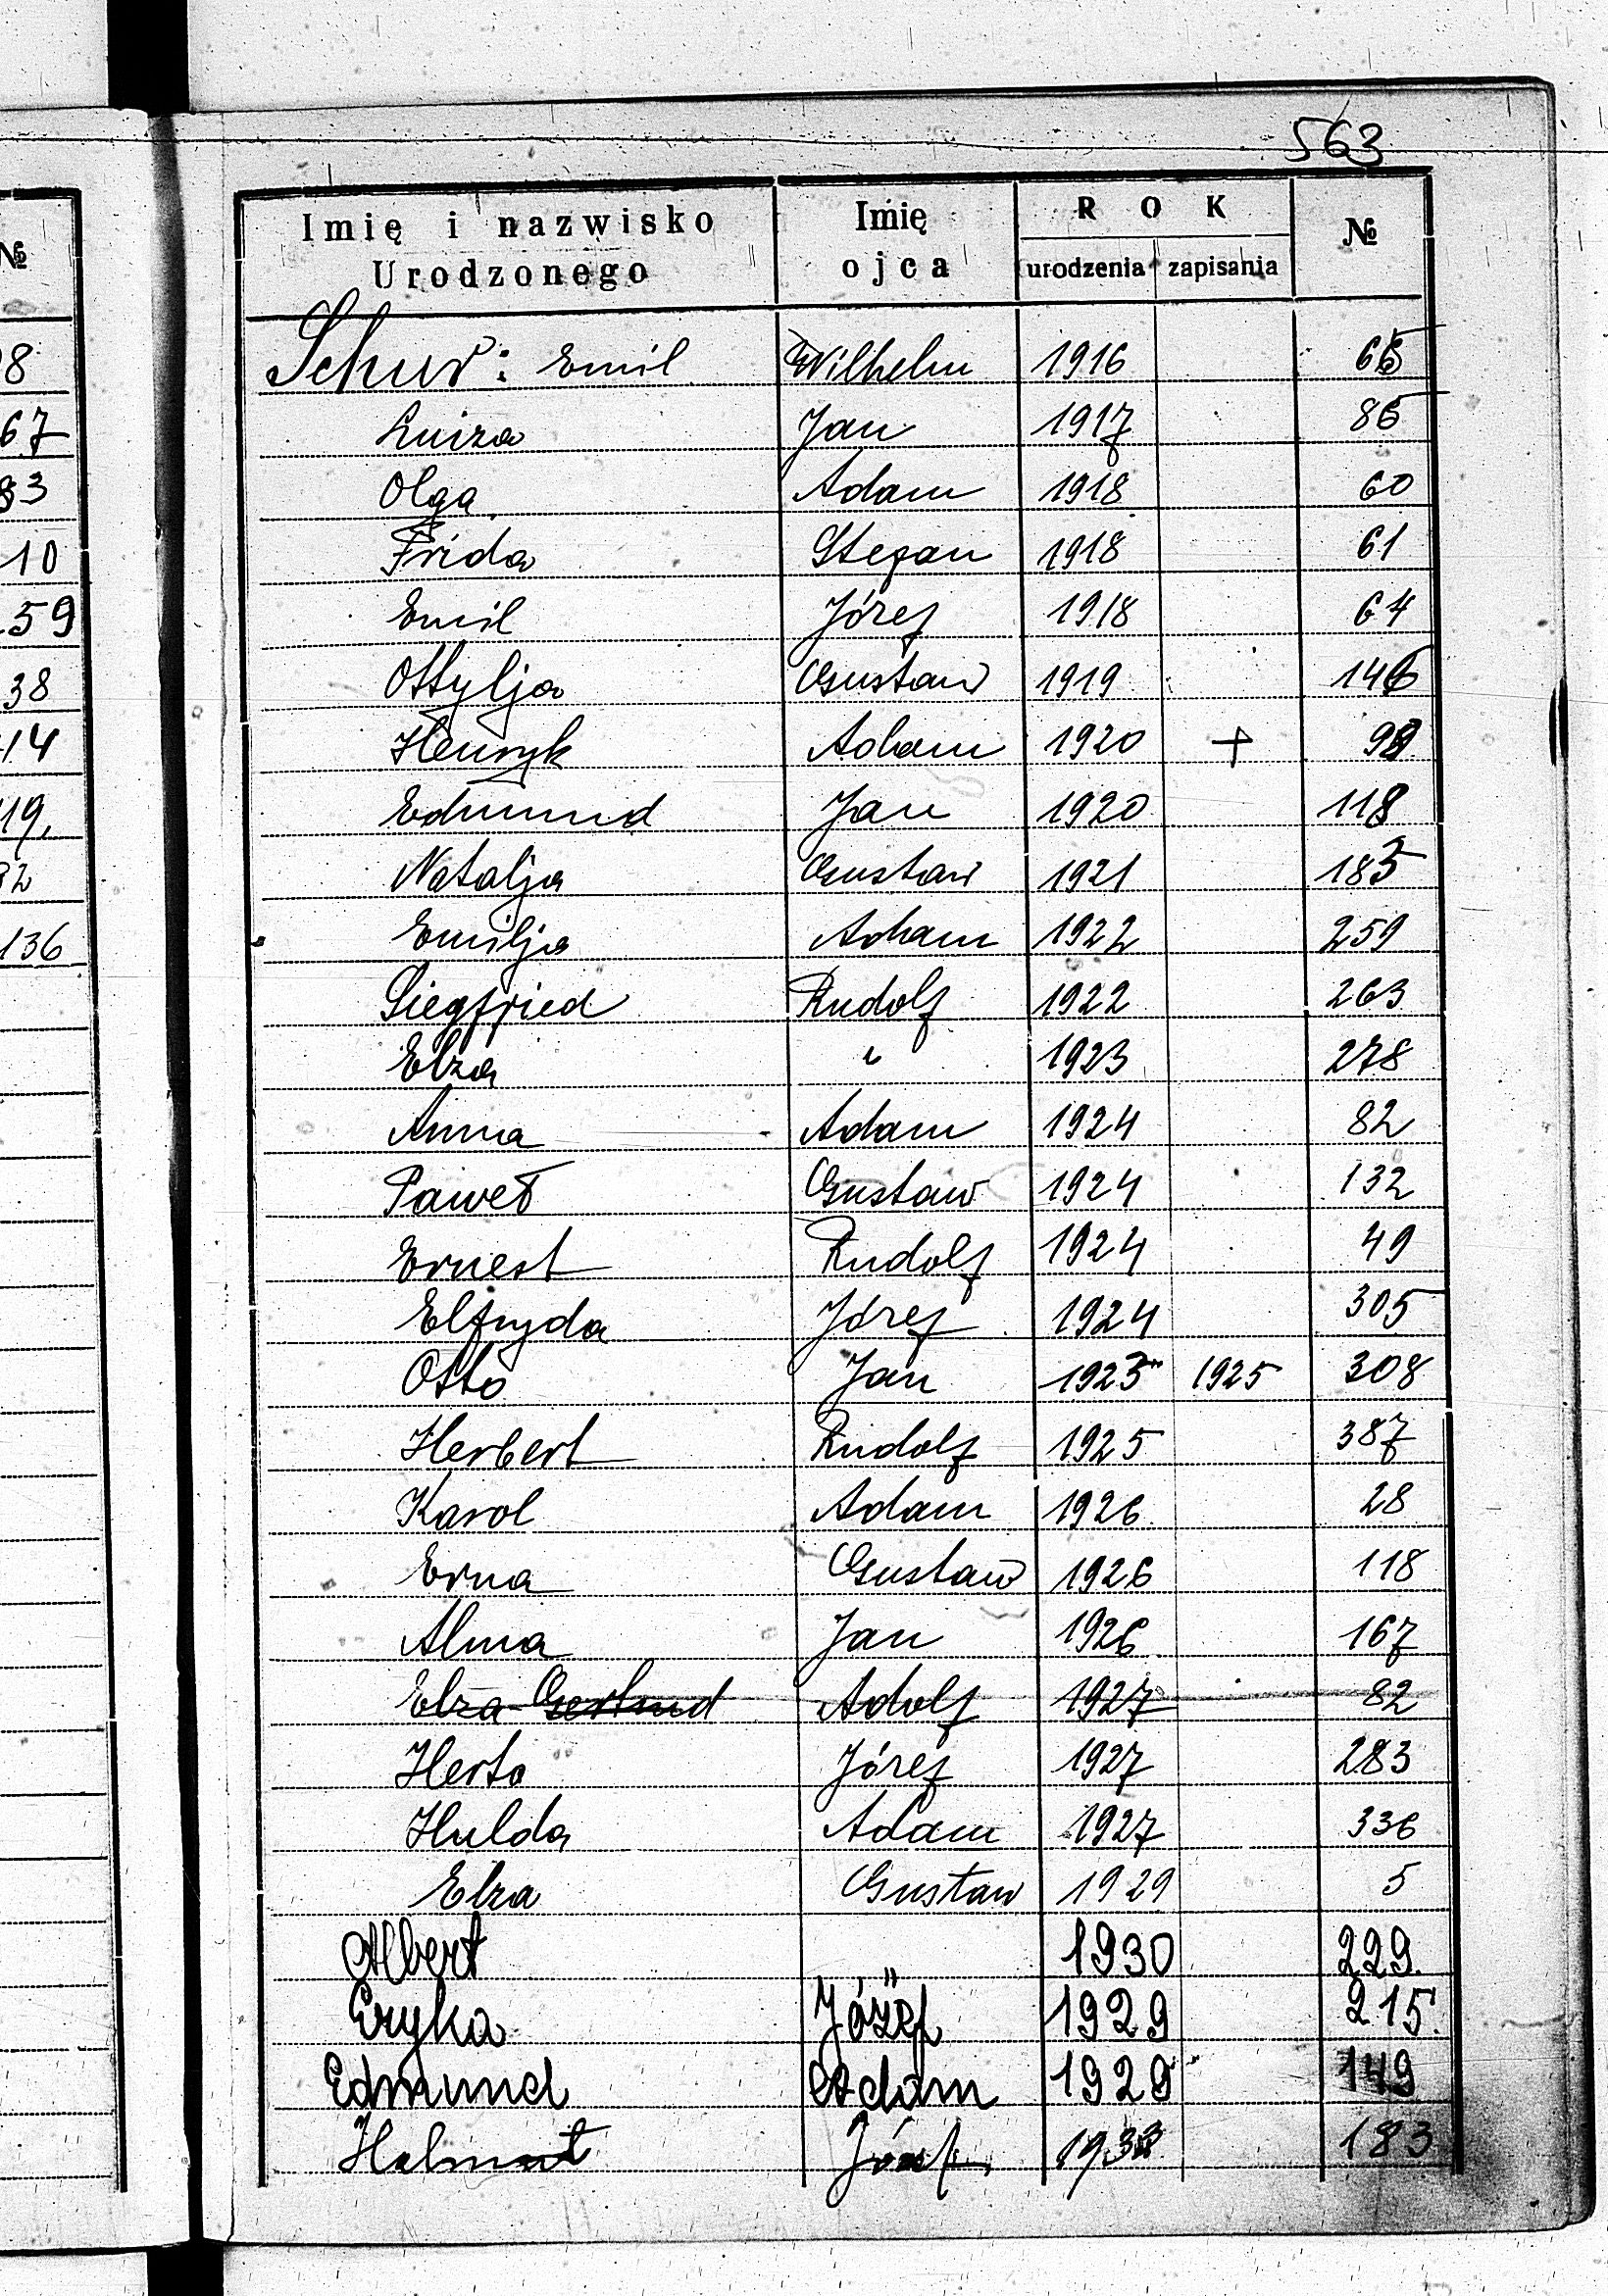 563
№ Imię i nazwisko Imię R O K №
Urodzonego ojca urodzenia zapisania
Schur: Emil Wilhelm 1916 65
67 Luiza Jan 1917 85
83 Olga Adam 1918 60
10 Frida Stefan 1918 61
59 Emil Józef 1918 64
38 Ottylja Gustaw 1919 146
14 Henryk Adam 1920 +
19, Edmund Jan 1920 118
32 Natalja Gustaw 1921 185
136 Emilja Adam 1922 259
Siegfried Rudolf 1922 263
Elza " 1923 278
Anna Adam 1924 82
Paweł Gustaw 1924 132
Ernest Rudolf 1924 49
Elfryda Józef 1924 305
Otto Jan 1925 308
Herbert Rudolf 1925 387
Karol Adam 1926 28
Erna Gustaw 1926 118
Alma Jan 1926 167
Elza Gertrud Adolf 1927 82
Herta Józef 1927 283
Hulda Adam 1927 336
Elza Gustaw 1929 5
Albert " 1930 229
Eryka Józef 1929 215
Edmund Adam 1929 149
Helmut Józef 183